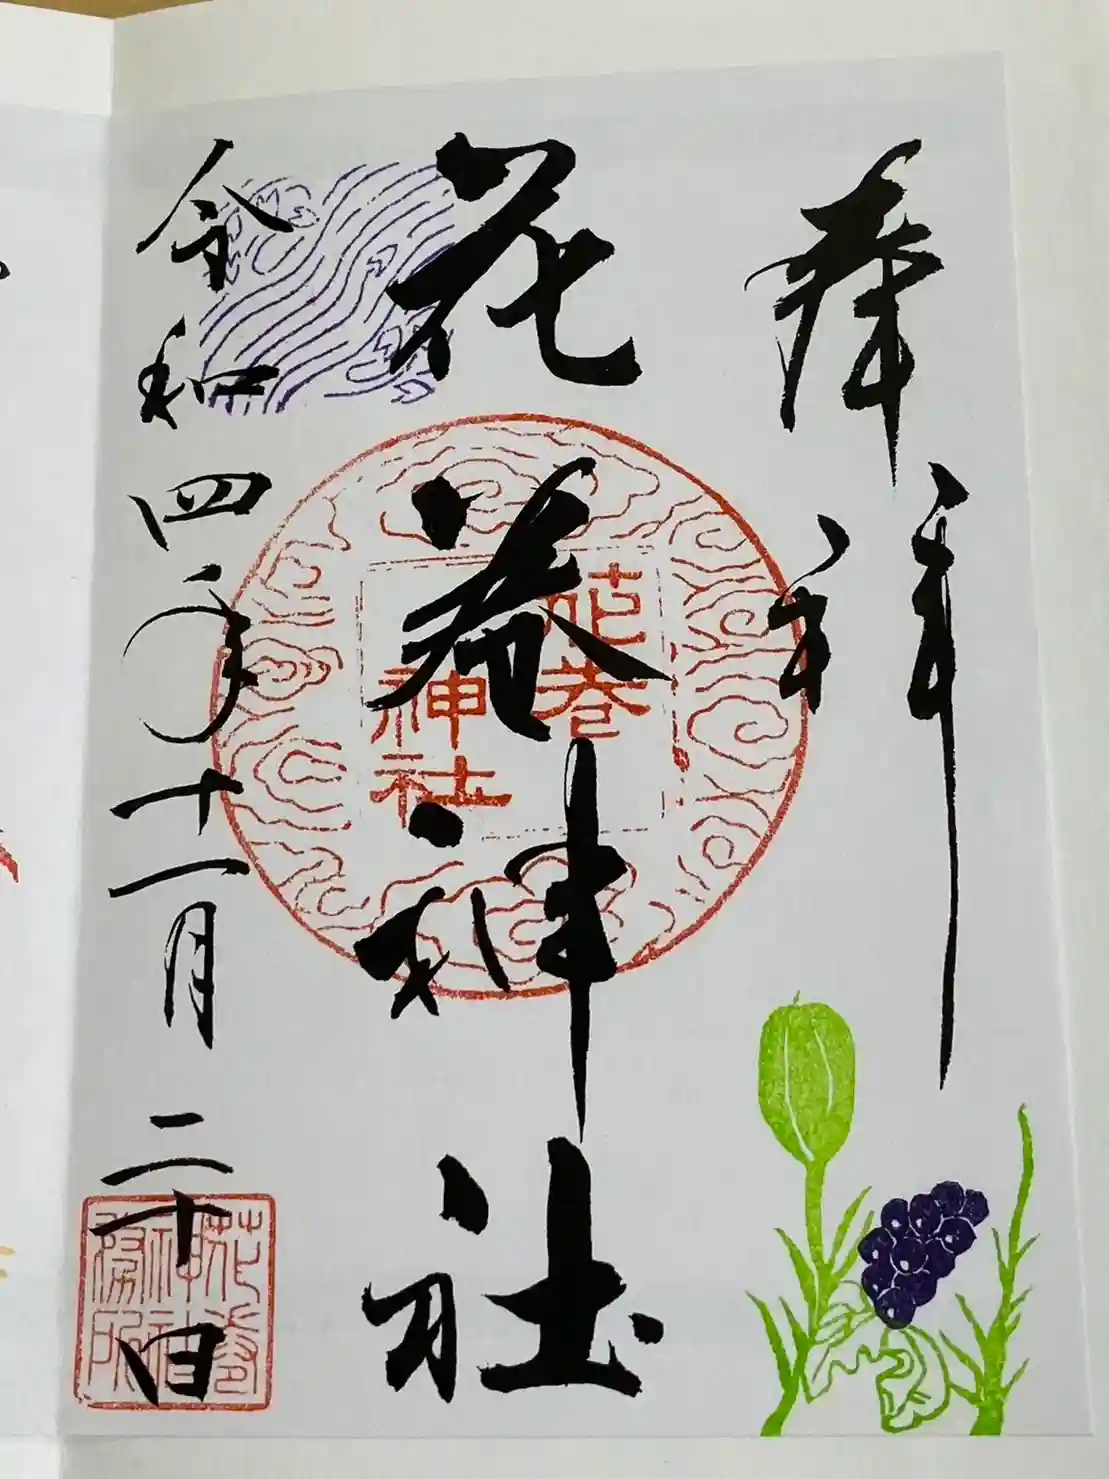 奉拝
花巻神社
花巻
神社
令和四年十一月二十日
花巻
神社
務所